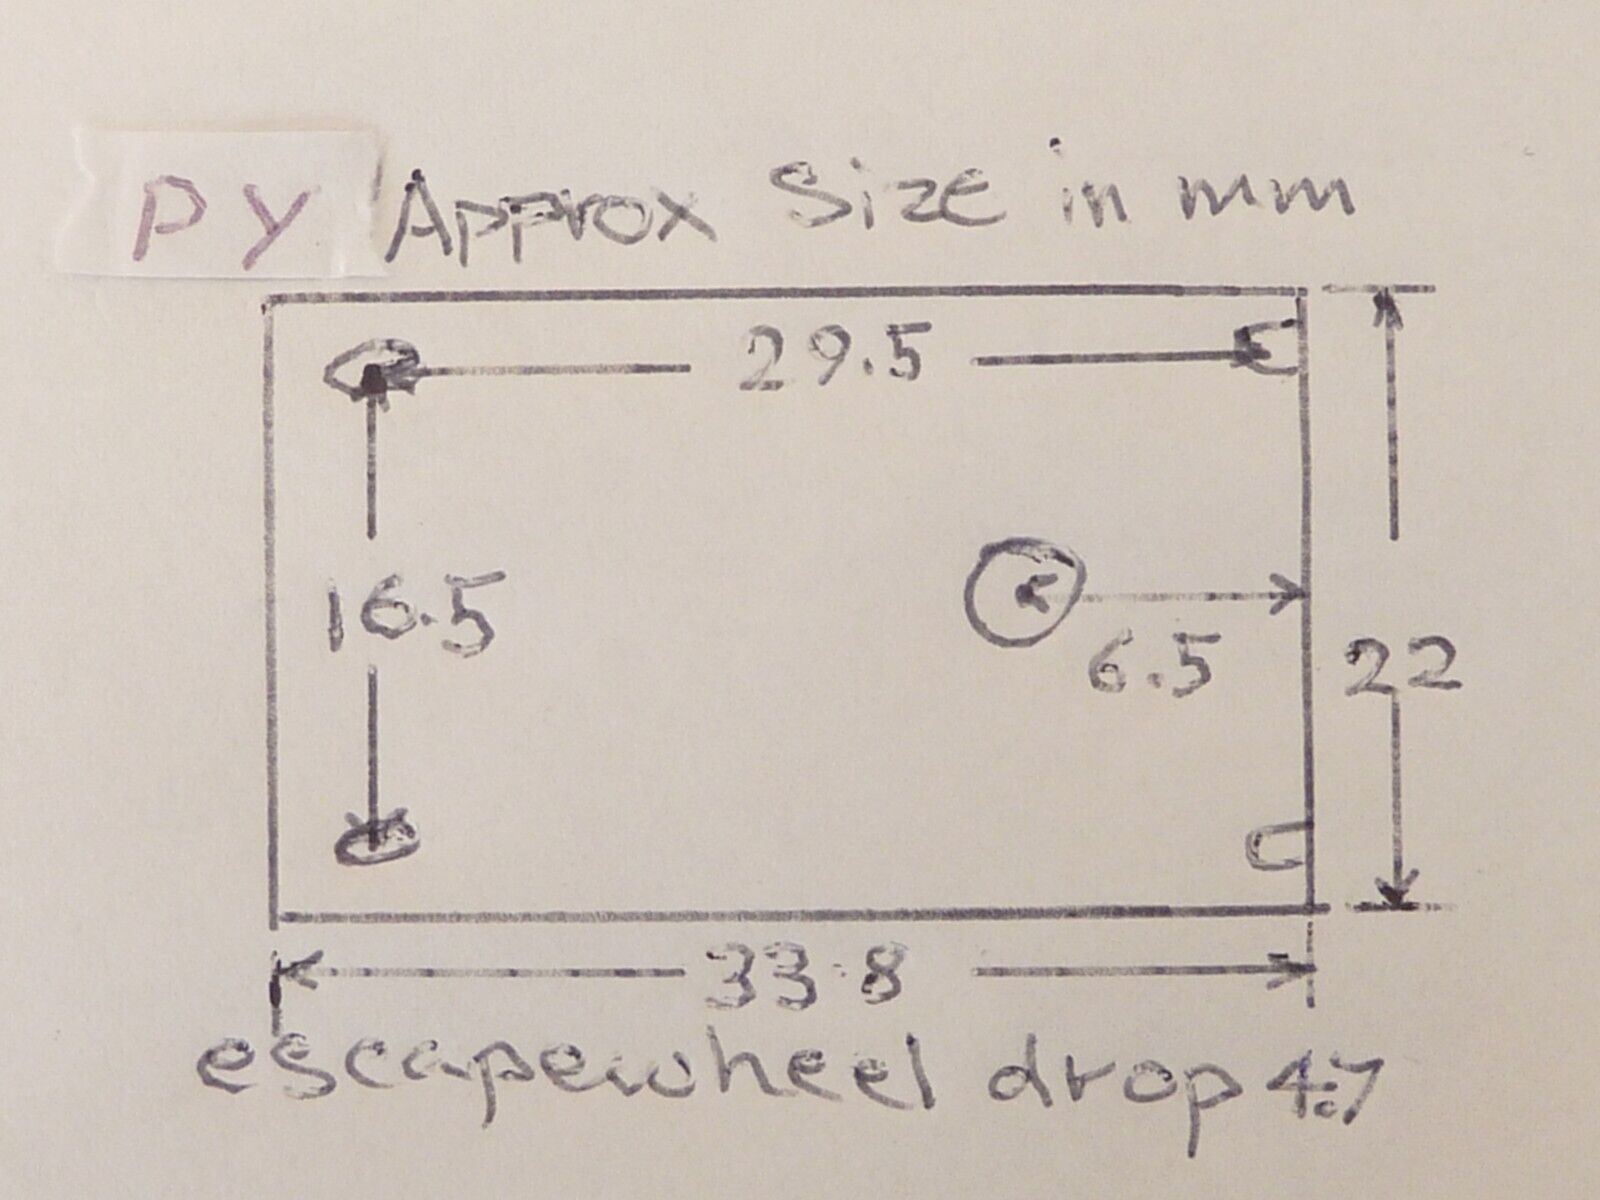 PY Approx Size in mm
29.5
16.5
6.5
22
33.8
escapewheel drop 4.7